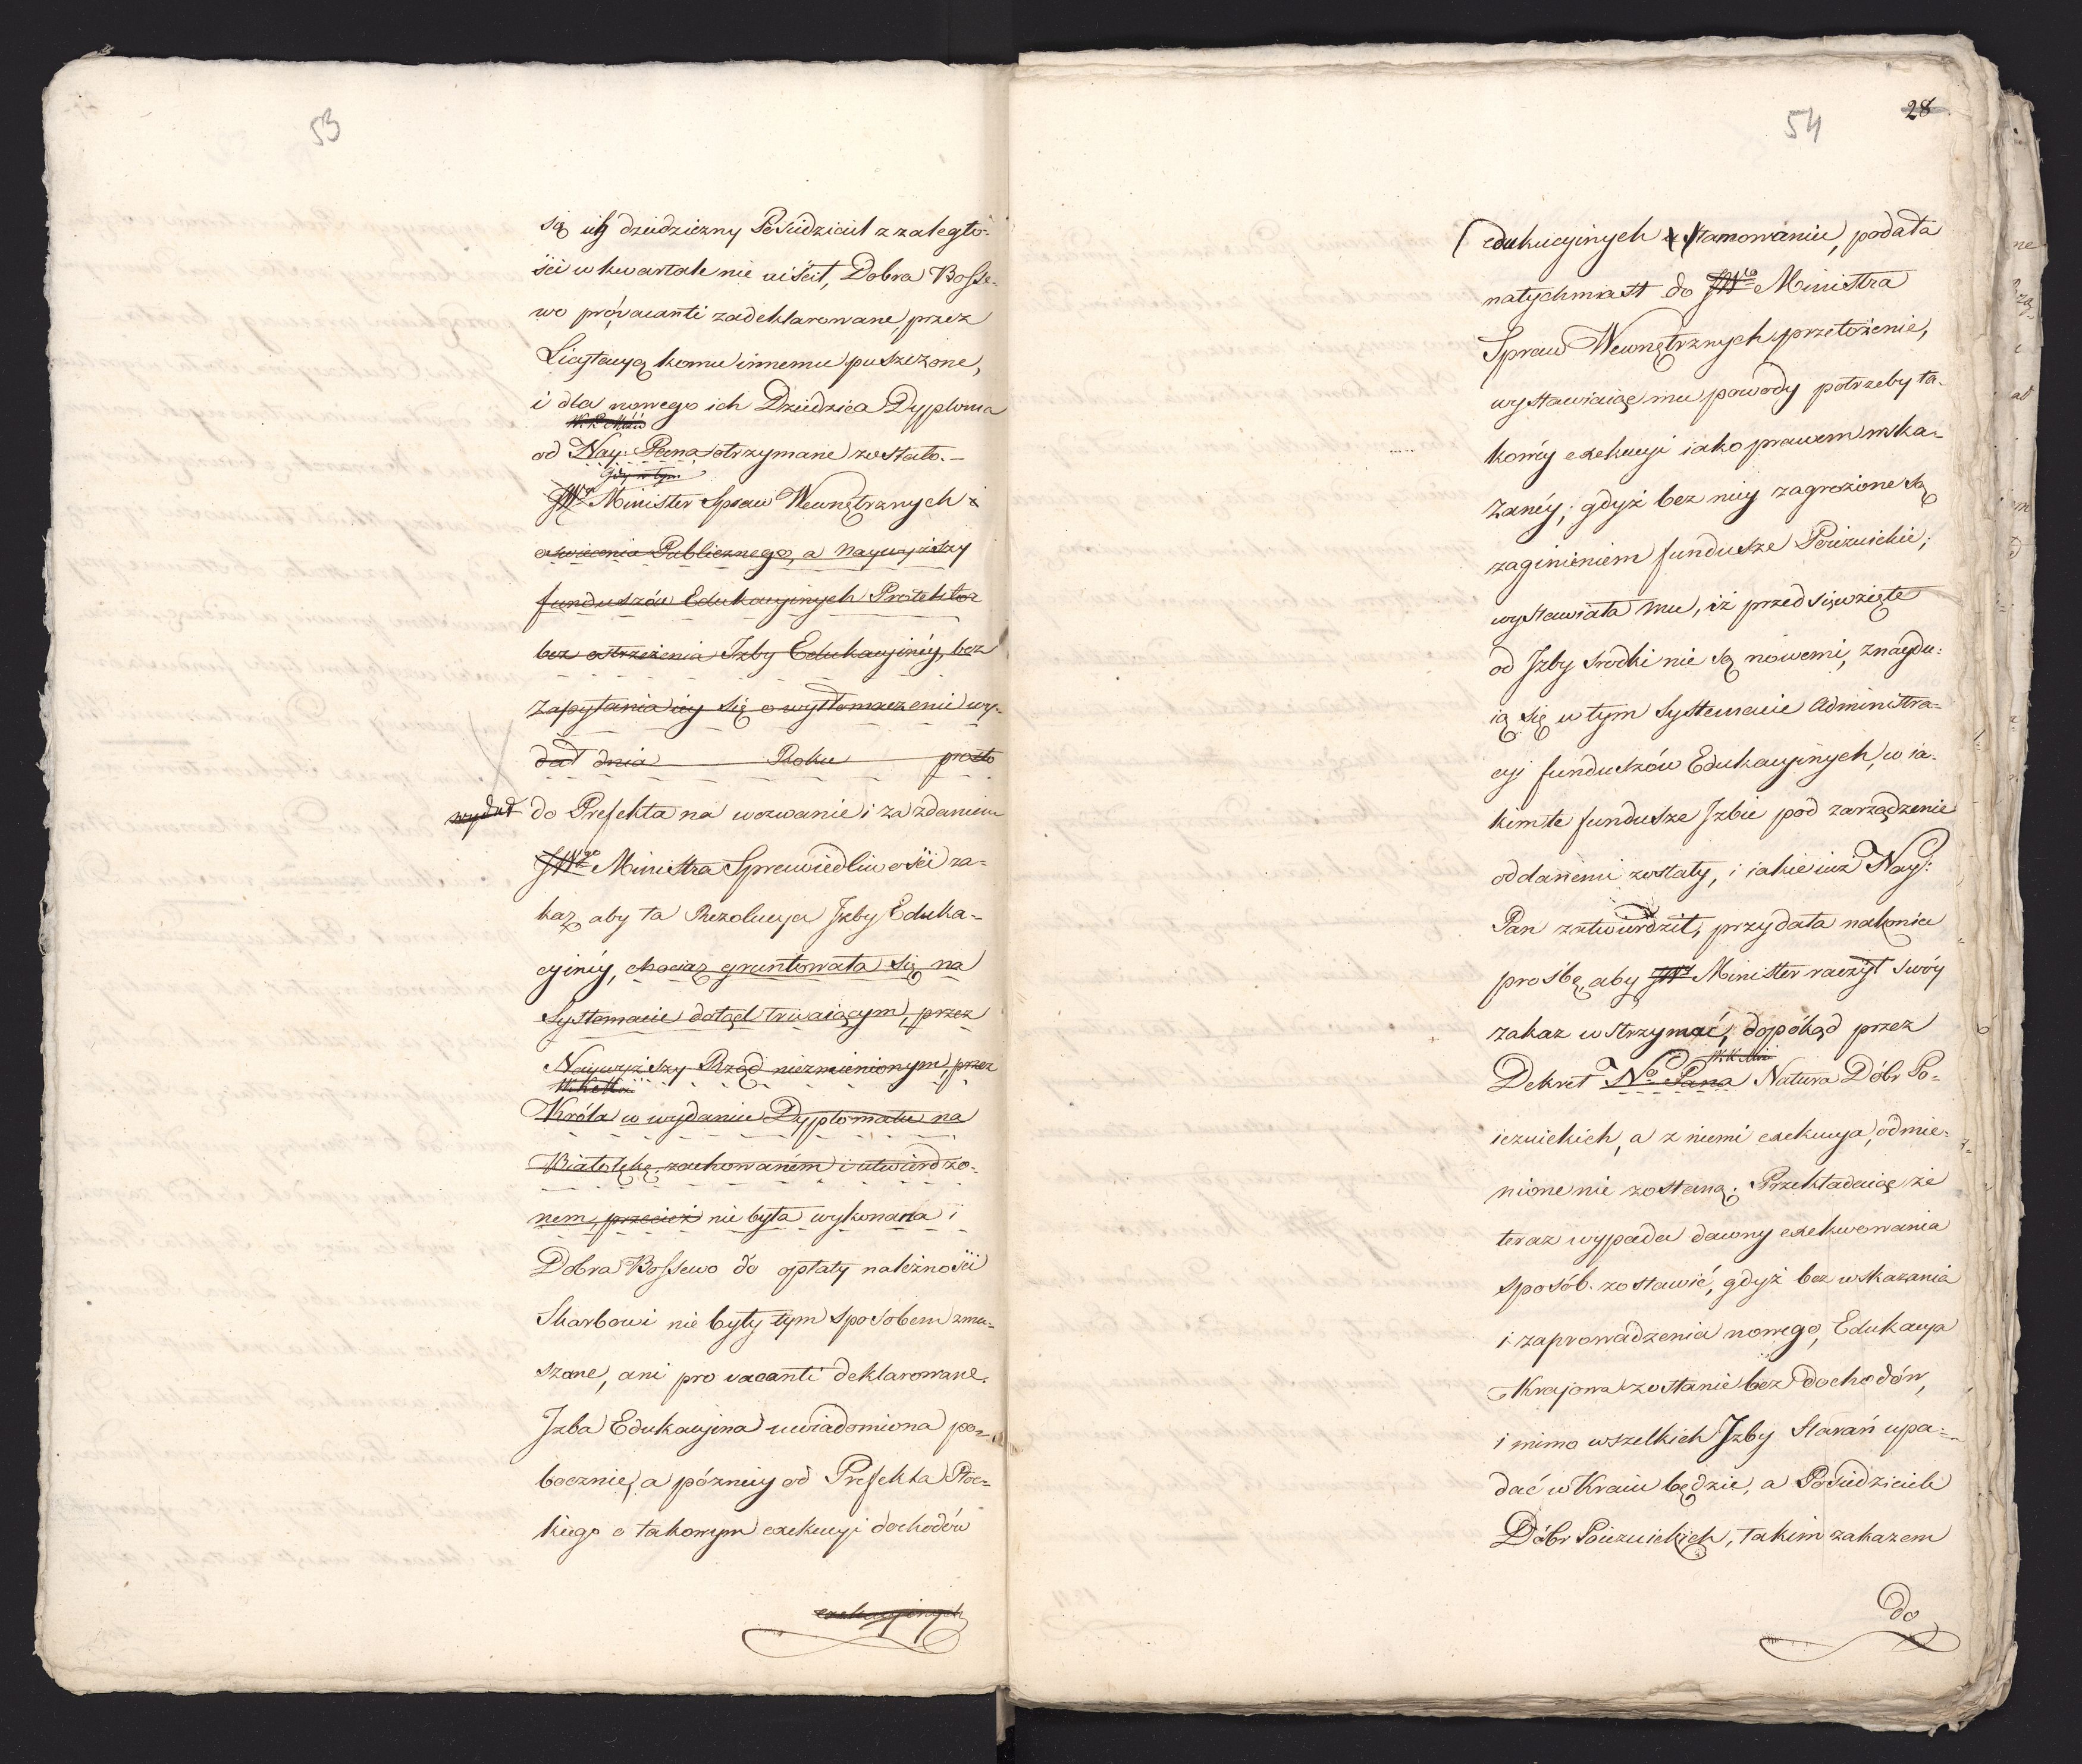 53
się ich dziedziczny Posiedziciel z zaległo-
ści w kwartale nie uiścił, Dobra Bosse-
wo pro vacanti zadeklarowane, przez
Licytacyą komu innemu puszczone,
i dla nowego ich Dziedzica Dyploma
od Nay: Pana otrzymane zostało.—
Gdy w tym
JW Minister Spraw Wewnętrznych i
oswiecenia Publicznego, a naywyższy
funduszów Edukacyinych Protektor
bez ostrzeżenia Izby Edukacyiney, bez
zapytania iey się o wytłomaczenie wy-
dał dnia Roku prosto
wydał do Prefekta na wezwanie i za zdaniem
JWgo Ministra Sprawiedliwości za-
kaz, aby ta Rezolucya Izby Eduka-
cyiney, chociaz gruntowała się na
Systemacie dotąd trwaiącym, przez
Naywyższy Rząd niezmienionym, przez
Króla w wydaniu Dyplomatu na
Białołękę zachowaném i utwierdzo-
nem, przecież nie była wykonana i
Dobra Bossewo do opłaty należności
Skarbowi nie były tym sposobem zmu-
szane, ani pro vacanti deklarowane.
Izba Edukacyina uwiadomiona po-
bocznie, a pózniey od Prefekta Płoc-
kiego o takowym exekucyi dochodów
edukacyinych
54
28
edukacyinych tamowaniu, podała
natychmiast do JWgo Ministra
Spraw Wewnętrznych przełożenie,
wystawiaiąc mu powody potrzeby ta-
kowéy exekucyi iako prawem wska-
zanéy; gdyż bez niey zagrożone są
zaginieniem fundusze Poiezuickie;
wystawiała mu, iż przedsięwzięte
od Izby srodki nie są nowemi, znaydu-
ią się w tym systemacie administra-
cyi funduszów Edukacyinych, w ia-
kim te fundusze Izbie pod zarządzenie
oddanemi zostały, i iakie iuż Nay:
Pan zatwierdził, przydała nakoniec
prośbę, aby JW Minister raczył swóy
zakaz wstrzymać, dopókąd przez
Dekret No Pana Natura Dóbr Po-
iezuickich, a z niemi exekucya, odmie-
nione nie zostaną. Przekładaiąc że
teraz wypada dawny exekwowania
sposób zostawić, gdyż bez wskazania
i zaprowadzenia nowego, Edukacya
Krajowa zostanie bez dochodów,
i mimo wszelkich Izby Starań upa-
dać w Kraiu będzie, a Posiedziciele
Dóbr Poiezuickich, takim zakazem
do